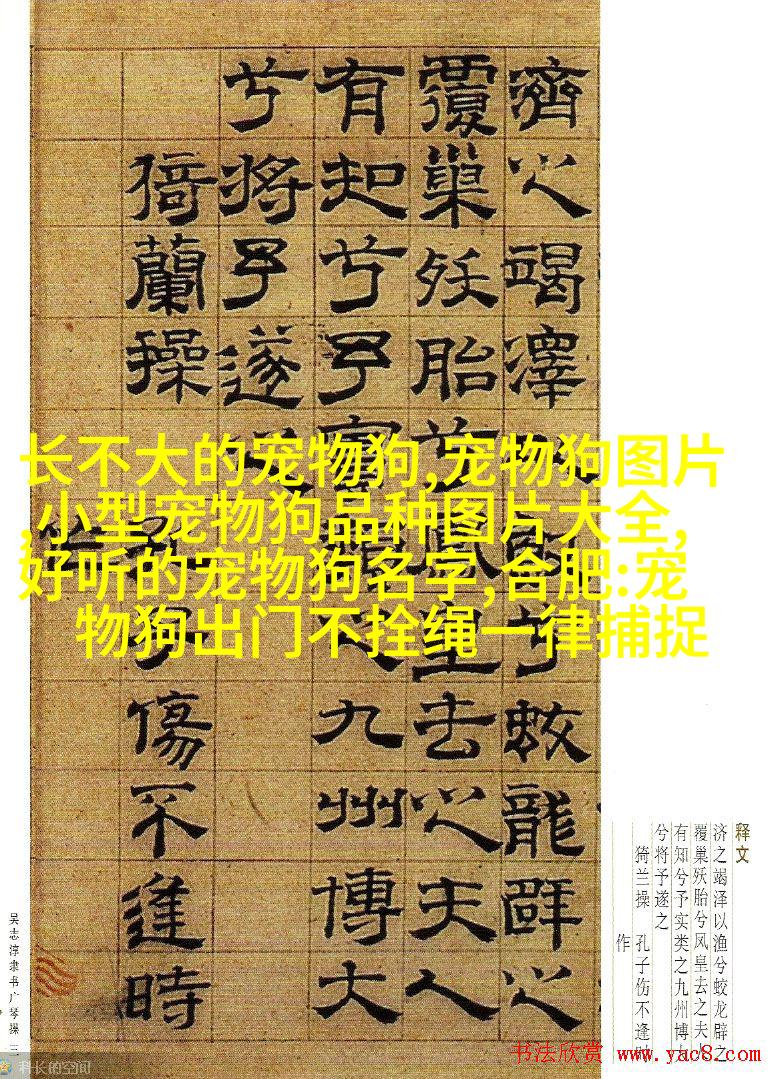 长不大的宠物狗,宠物狗图片
,小型宠物狗品种图片大全,
好听的宠物狗名字,合肥:宠
物狗出门不拴绳一律捕捉
濟之竭澤以漁兮蛟龍辟之
覆巢殀胎兮鳳皇去之夫人
有知兮予實類之九州博大
兮將予遂之
猗蘭操 孔子傷不逢時
作
释文
济之竭泽以渔兮蛟龙辟之
覆巢殀胎兮凤皇去之夫
有知兮予实类之九州博
兮将予遂之
猗兰操 孔子伤不逢
作
吴志淳隶书广琴操 三
科长的空间
书法欣赏 www.yac8.com